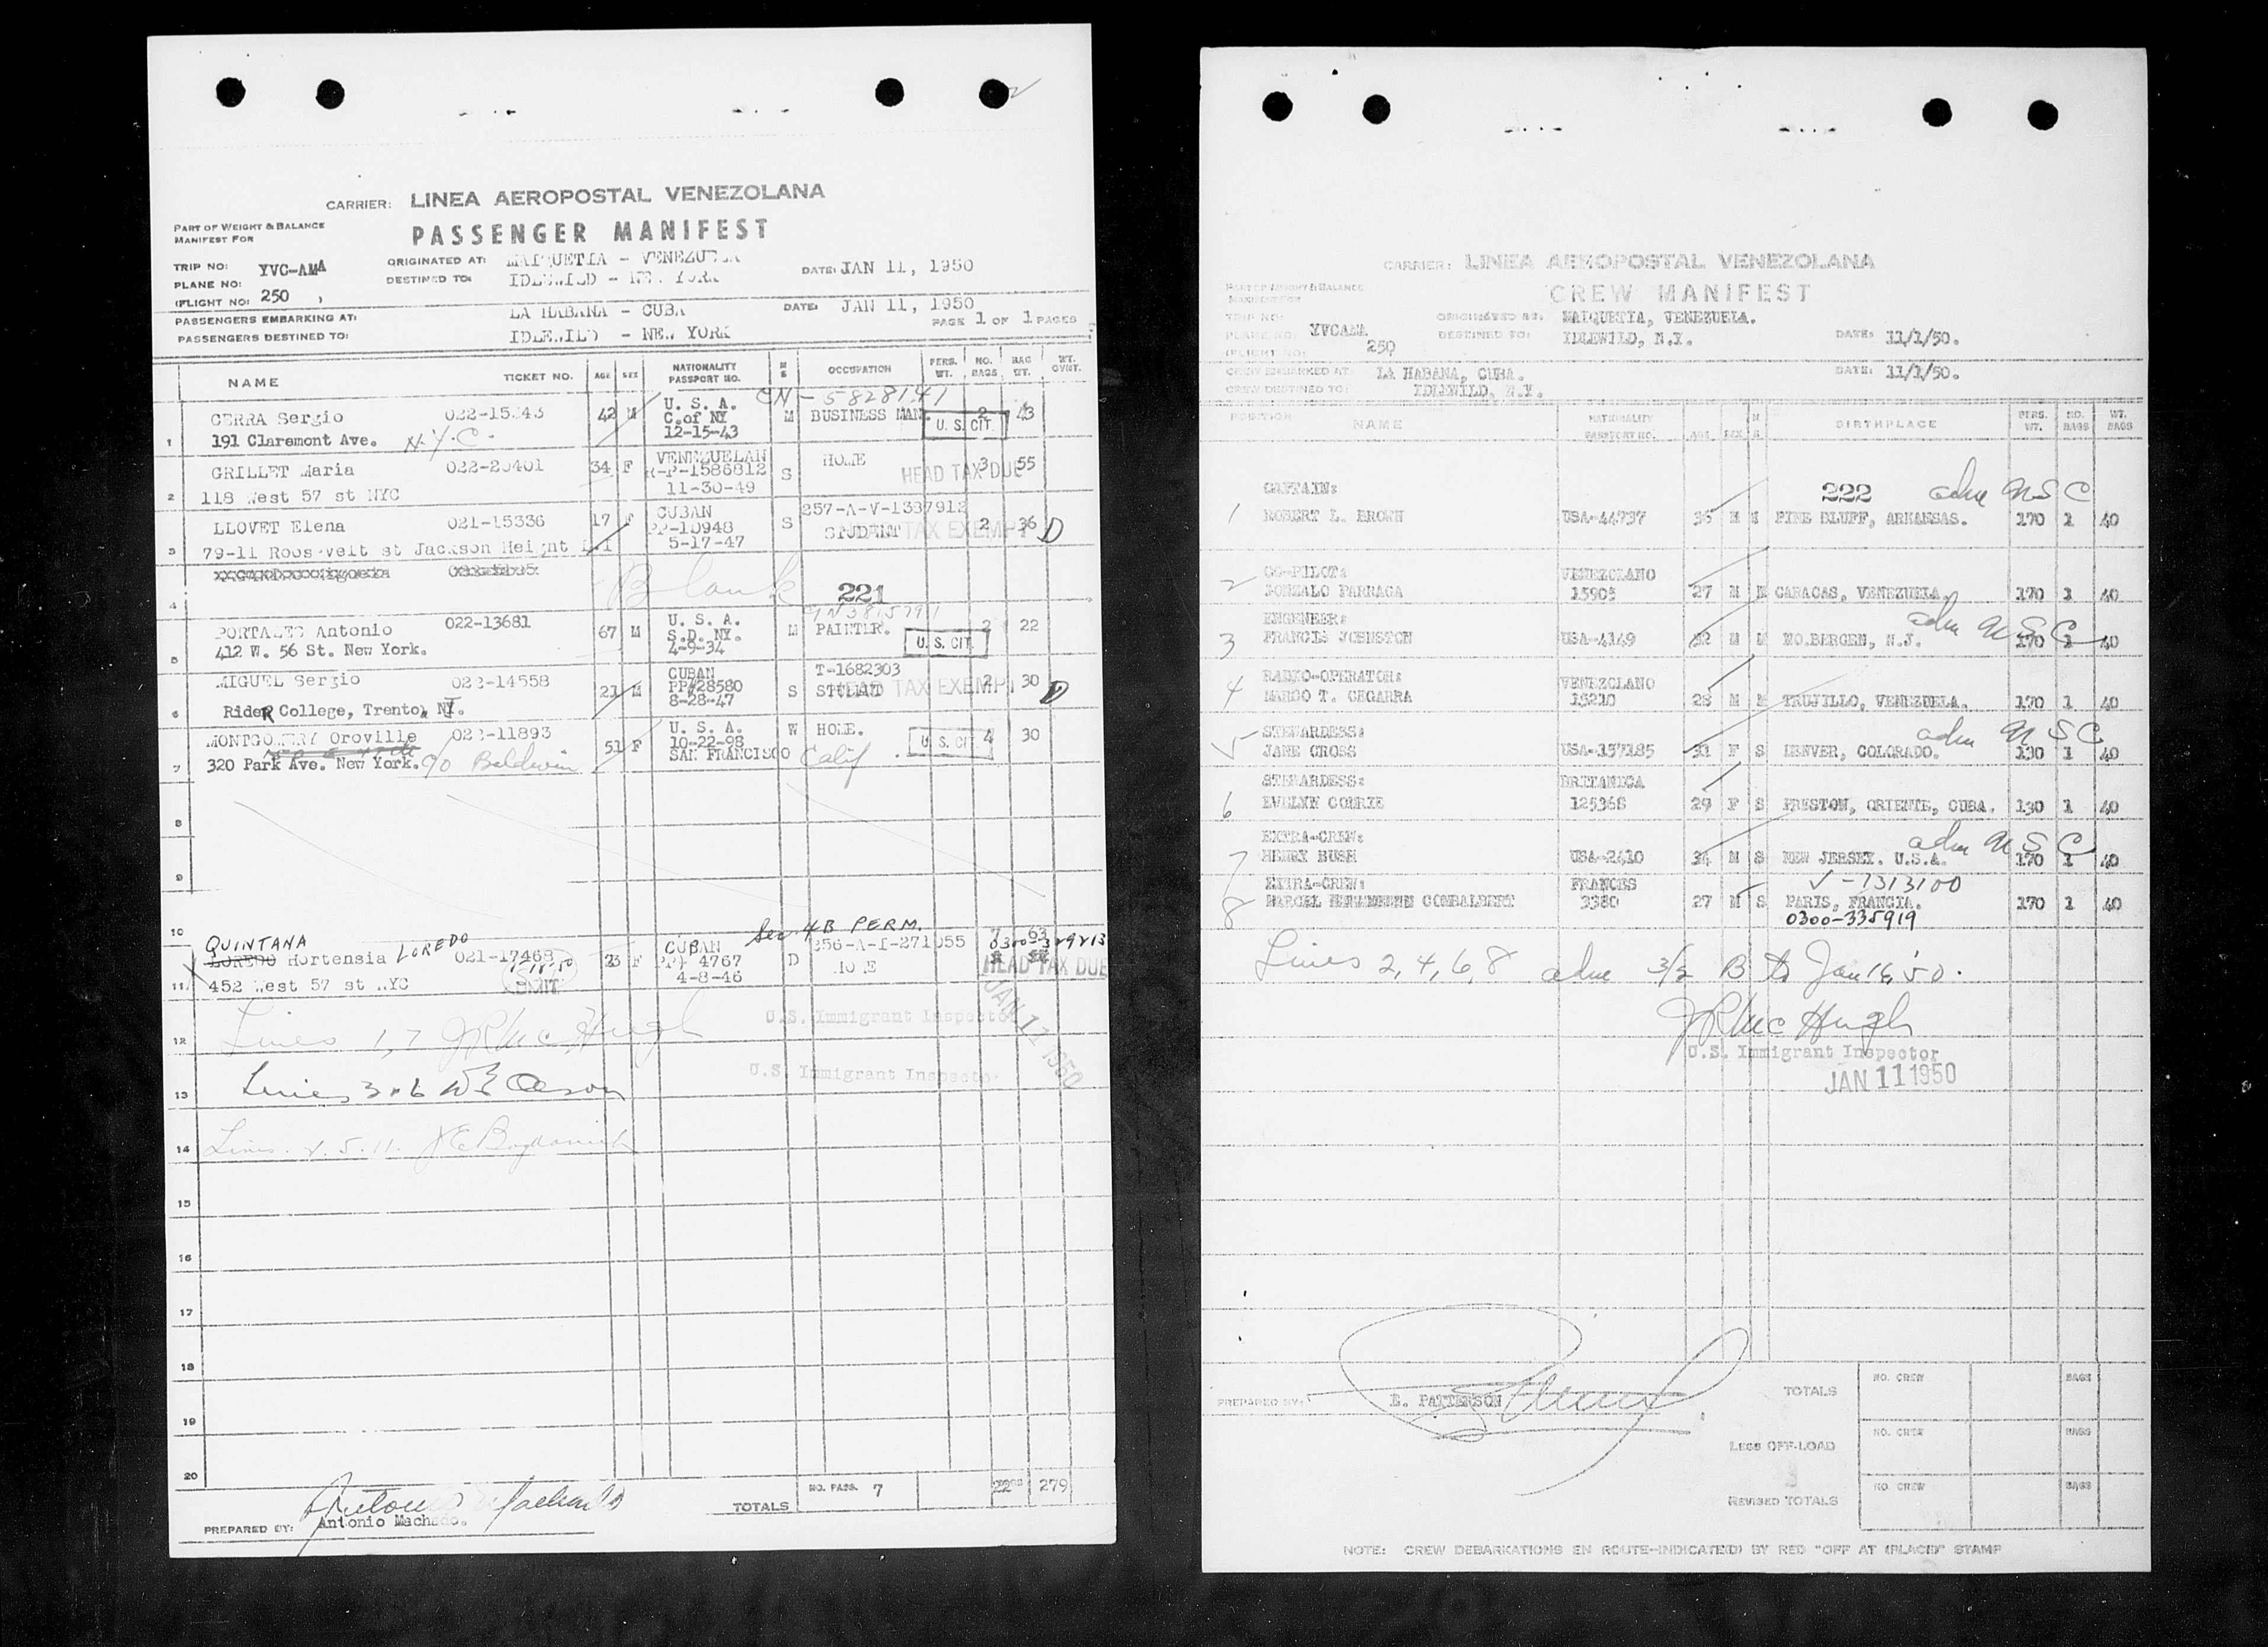 CARRIER: LINEA AEROPOSTAL VENEZOLANA
PART OF WEIGHT & BALANCE
MANIFEST FOR
PASSENGER MANIFEST
TRIP NO: YVC-AMA ORIGINATED AT: MAIQUETIA - VENEZUELA DATE: JAN 11, 1950
PLANE NO: DESTINED TO: IDLEWILD - NEW YORK
(FLIGHT NO: 250 )
PASSENGERS EMBARKING AT: LA HABANA - CUBA DATE: JAN 11, 1950
PAGE 1 OF 1 PAGES
PASSENGERS DESTINED TO: IDLEWILD - NEW YORK
NAME TICKET NO. AGE SEX NATIONALITY PASSPORT NO. M S OCCUPATION PERS. WT. NO. BAGS BAG WT. WT. OVWT.
CN-5828141
CERRA Sergio 022-15343 42 M U. S. A. M BUSINESS MAN 2 43
C.of NY U. S. CIT.
1 191 Claremont Ave. N.Y.C. 12-15-43
GRILLET Maria 022-20401 34 F VENEZUELAN S HOME 3 55
R-P-1586812 HEAD TAX DUE
2 118 West 57 st NYC 11-30-49
LLOVET Elena 021-15336 17 F CUBAN S 257-A-V-1337912 2 36 D
PP-10948 STUDENT HEAD TAX EXEMPT
3 79-11 Roosevelt st Jackson Height 5-17-47
4 Blank 221
PORTALES Antonio 022-13681 67 M U. S. A. M PAINTER. 2 22
S.D. NY. U. S. CIT
5 412 W. 56 St. New York. 4-9-34
MIGUEL Sergio 022-14558 21 M CUBAN S T-1682303 2 30 D
PP#28580 STUDENT HEAD TAX EXEMPT
8-28-47
6 RideR College, Trenton, NJ.
MONTGOMERY Oroville 022-11893 51 F U. S. A. W HOME. 4 30
10-22-98 U. S. CIT
7 320 Park Ave. New York. c/o Baldwin SAN FRANCISCO Calif
8
9
10 Sec 4B PERM.
QUINTANA
LOREDO Hortensia LOREDO 021-17468 23 F CUBAN D 256-A-I-271055 7 63
PP# 4767 HOME
HEAD TAX DUE
11 452 West 57 st NYC 4-8-46
JAN 11 1950
12 Lines 1,7 JR McHugh U.S. Immigrant Inspector
13 Lines 3 & 6 U.S. Immigrant Inspector
14
15
16
17
18
19
20
TOTALS NO. PASS. 7 22 279
PREPARED BY: Antonio Machado.
CARRIER: LINEA AEROPOSTAL VENEZOLANA
PART OF WEIGHT & BALANCE
MANIFEST FOR
CREW MANIFEST
TRIP NO: ORIGINATED AT: MAIQUETIA, VENEZUELA.
PLANE NO: YVCAMA DESTINED TO: IDLEWILD, N.Y. DATE: 11/1/50.
(FLIGHT NO: 250
CREW EMBARKED AT: LA HABANA, CUBA. DATE: 11/1/50.
CREW DESTINED TO: IDLEWILD, N.Y.
POSITION NAME NATIONALITY PASSPORT NO. AGE SEX M S BIRTHPLACE PERS. WT. NO. BAGS WT. BAGS
CAPTAIN: 222 adm USC
1 ROBERT L. BROWN USA-44737 36 M M PINE BLUFF, ARKANSAS. 170 1 40
CO-PILOT: VENEZOLANO
2 GONZALO PARRAGA 15903 27 M M CARACAS, VENEZUELA. 170 1 40
ENGENEER: adm USC
3 FRANCIS JOHNSTON USA-4149 32 M M NO.BERGEN, N.J. 170 1 40
RADIO-OPERATOR: VENEZOLANO
4 MARCO T. CEGARRA 15210 28 M M TRUJILLO, VENEZUELA. 170 1 40
STEWARDESS: adm USC
5 JANE CROSS USA-157185 31 F S DENVER, COLORADO. 130 1 40
STEWARDESS: BRITANICA
6 EVELYN COMRIE 125368 29 F S PRESTON, ORIENTE, CUBA. 130 1 40
EXTRA-CREW: adm USC
7 HENRY BUSH USA-2410 34 M S NEW JERSEY. U.S.A. 170 1 40
EXTRA-CREW: FRANCES V-1313100
8 MARCEL COMBALBERT 3380 27 M S PARIS, FRANCIA. 170 1 40
0300-335919
Lines 2, 4, 6, 8 adm 3/2 B to Jan 16, '50.
JR McHugh
U.S. Immigrant Inspector
JAN 11 1950
PREPARED BY: E. PATTERSON
TOTALS NO. CREW BAGS
LESS OFF-LOAD NO. CREW BAGS
REVISED TOTALS NO. CREW BAGS
NOTE: CREW DEBARKATIONS EN ROUTE-INDICATED BY RED "OFF AT (PLACE)" STAMP